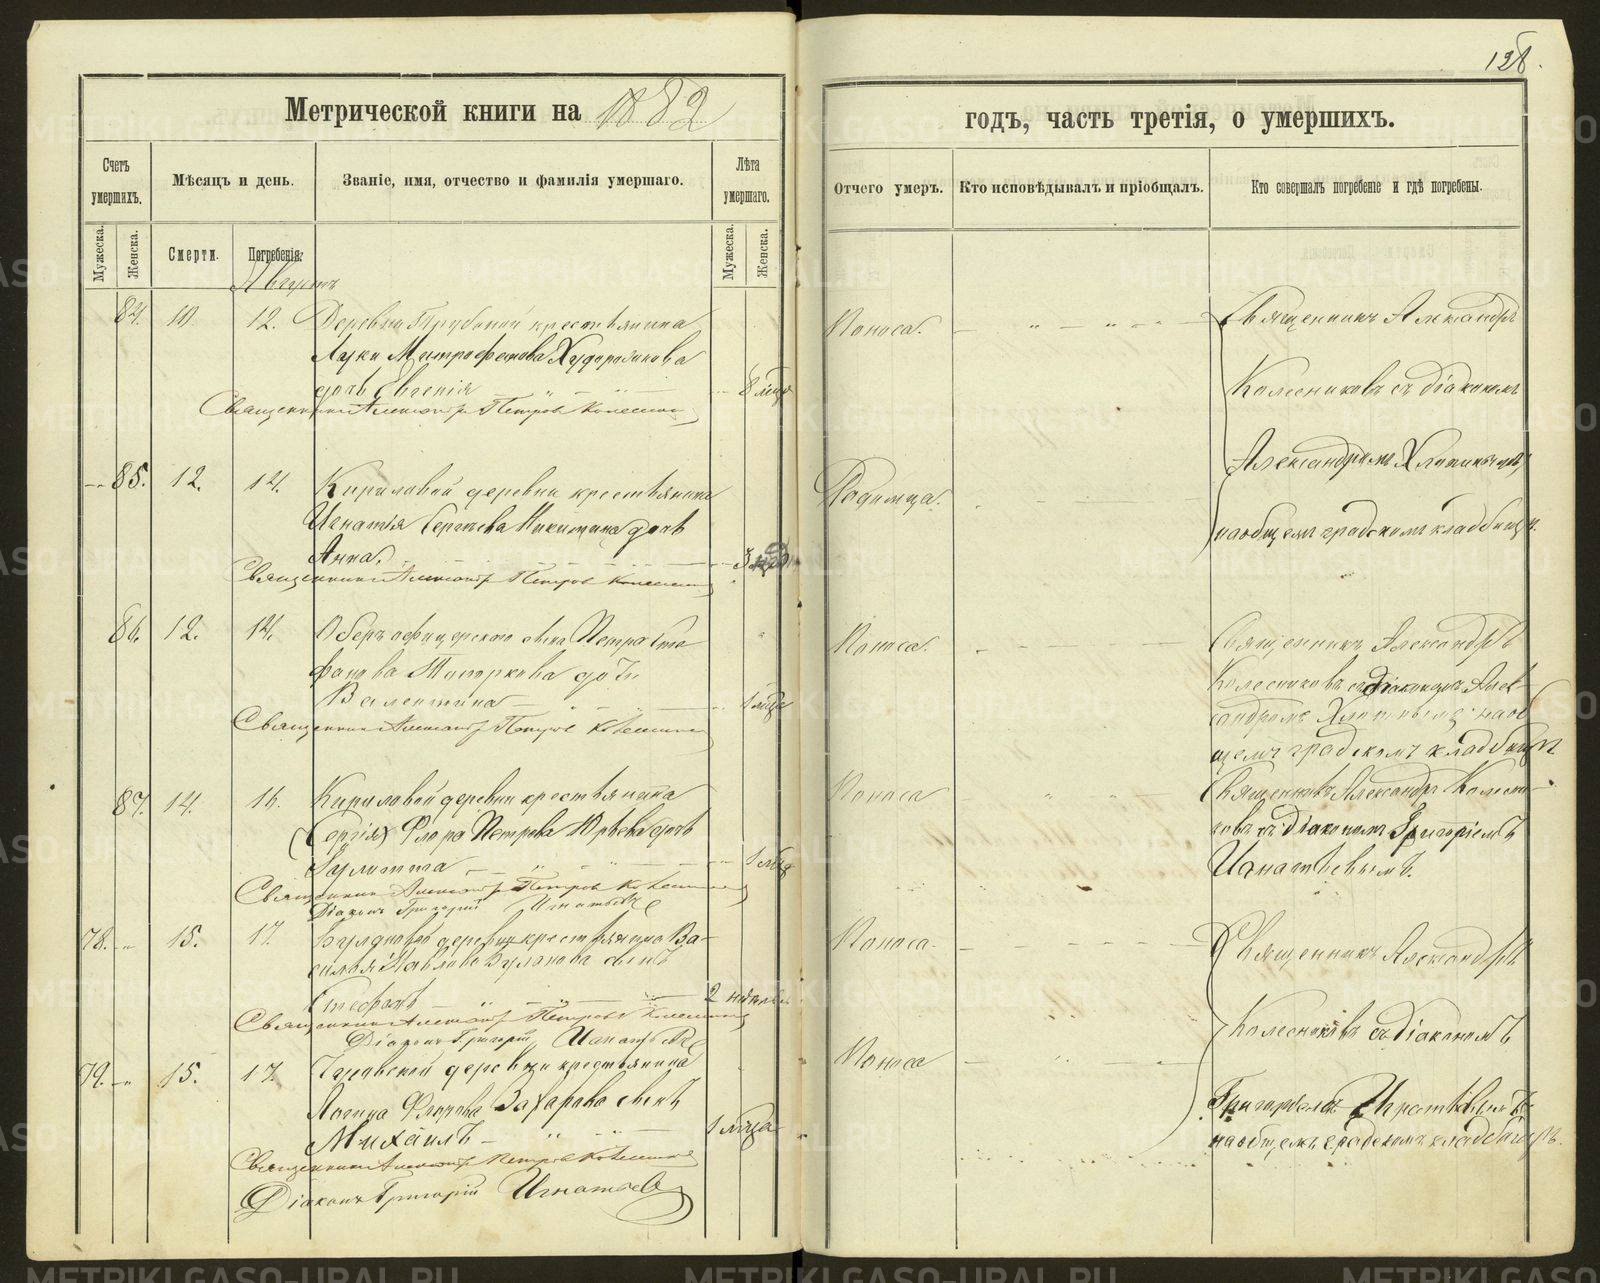 128.
Метрической книги на 1882
годъ, часть третія, о умершихъ.
Счетъ умершихъ.
Мѣсяцъ и день.
Званіе, имя, отчество и фамилія умершаго.
Лѣта умершаго.
Отчего умеръ.
Кто исповѣдывалъ и пріобщалъ.
Кто совершалъ погребеніе и гдѣ погребены.
Мужеска.
Женска.
Смерти.
Погребенія.
Мужеска.
Женска.
Августъ
84. 10 12. Деревни Трубиной крестьянина
Луки Митрофанова Худорожкова
дочь Евгенія 8 мѣс
Священникъ Александръ Петровъ
Поноса.
Священникъ Александръ
Колесниковъ съ діакономъ
Александромъ
на общемъ градскомъ кладбищѣ.
85. 12. 14. Кириловой деревни крестьянина
Игнатія Сергѣева Никитина дочь
Анна. 3
Священникъ Александръ Петровъ
Родимца.
86. 12. 14. Оберъ офицерскаго сына Петра Сте
фанова Топоркова дочь
Валентина 1 мѣс
Священникъ Александръ Петровъ
Поноса.
Священникъ Александръ
Колесниковъ съ діакономъ Алек
сандромъ на об
щемъ градскомъ кладбищѣ
87. 14. 16. Кириловой деревни крестьянина
(Сергія) Флора Петрова Юрьева дочь
Іулитта 1 мѣс
Священникъ Александръ Петровъ
Діаконъ Григорій Игнатьевъ
Поноса
Священникъ Александръ Колесни
ковъ съ діакономъ Григоріемъ
Игнатьевымъ.
78. 15. 17. деревни крестьянина Ва
силья Павлова сынъ
Стефанъ 2 недѣль
Священникъ Александръ Петровъ
Діаконъ Григорій Игнатьевъ
Поноса.
Священникъ Александръ
Колесниковъ съ діакономъ
Григоріемъ Игнатьевымъ
на общемъ градскомъ кладбищѣ.
79. 15. 17. деревни крестьянина
Логина Флорова Захарова сынъ
Михаилъ 1 мѣсяца
Священникъ Александръ Петровъ
Діаконъ Григорій Игнатьевъ
Поноса
METRIKI.GASO-URAL.RU